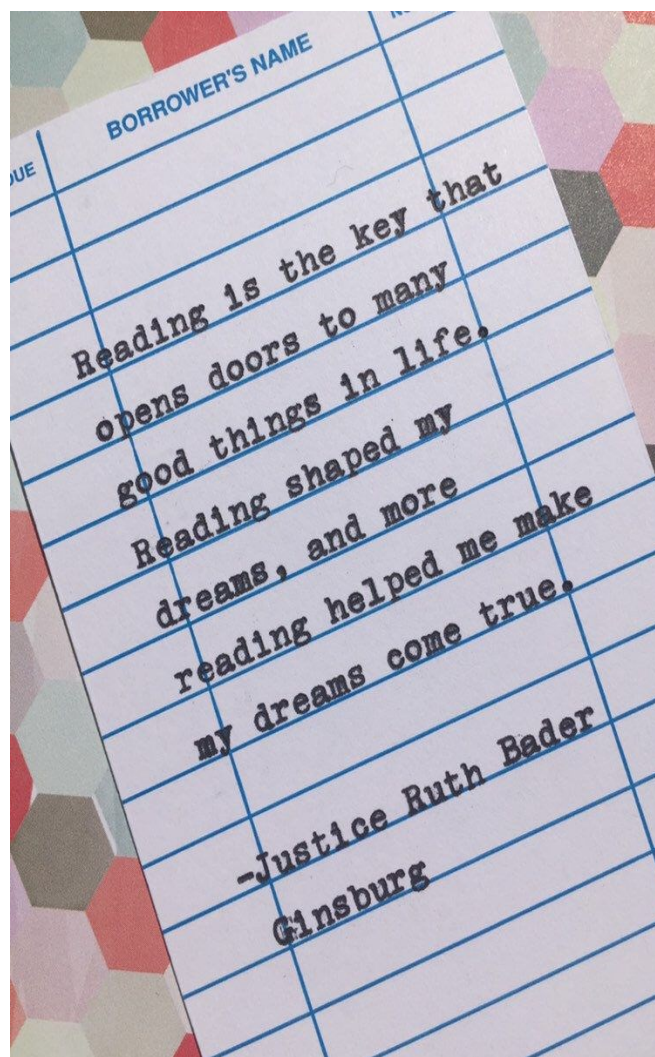 DUE
BORROWER'S NAME
Reading is the key that
opens doors to many
good things in life.
Reading shaped my
dreams, and more
reading helped me make
my dreams come true.
-Justice Ruth Bader
Ginsburg